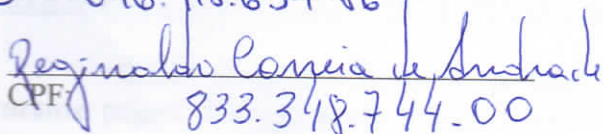 Reginaldo Correia de Andrade
CPF: 833.348.744-00